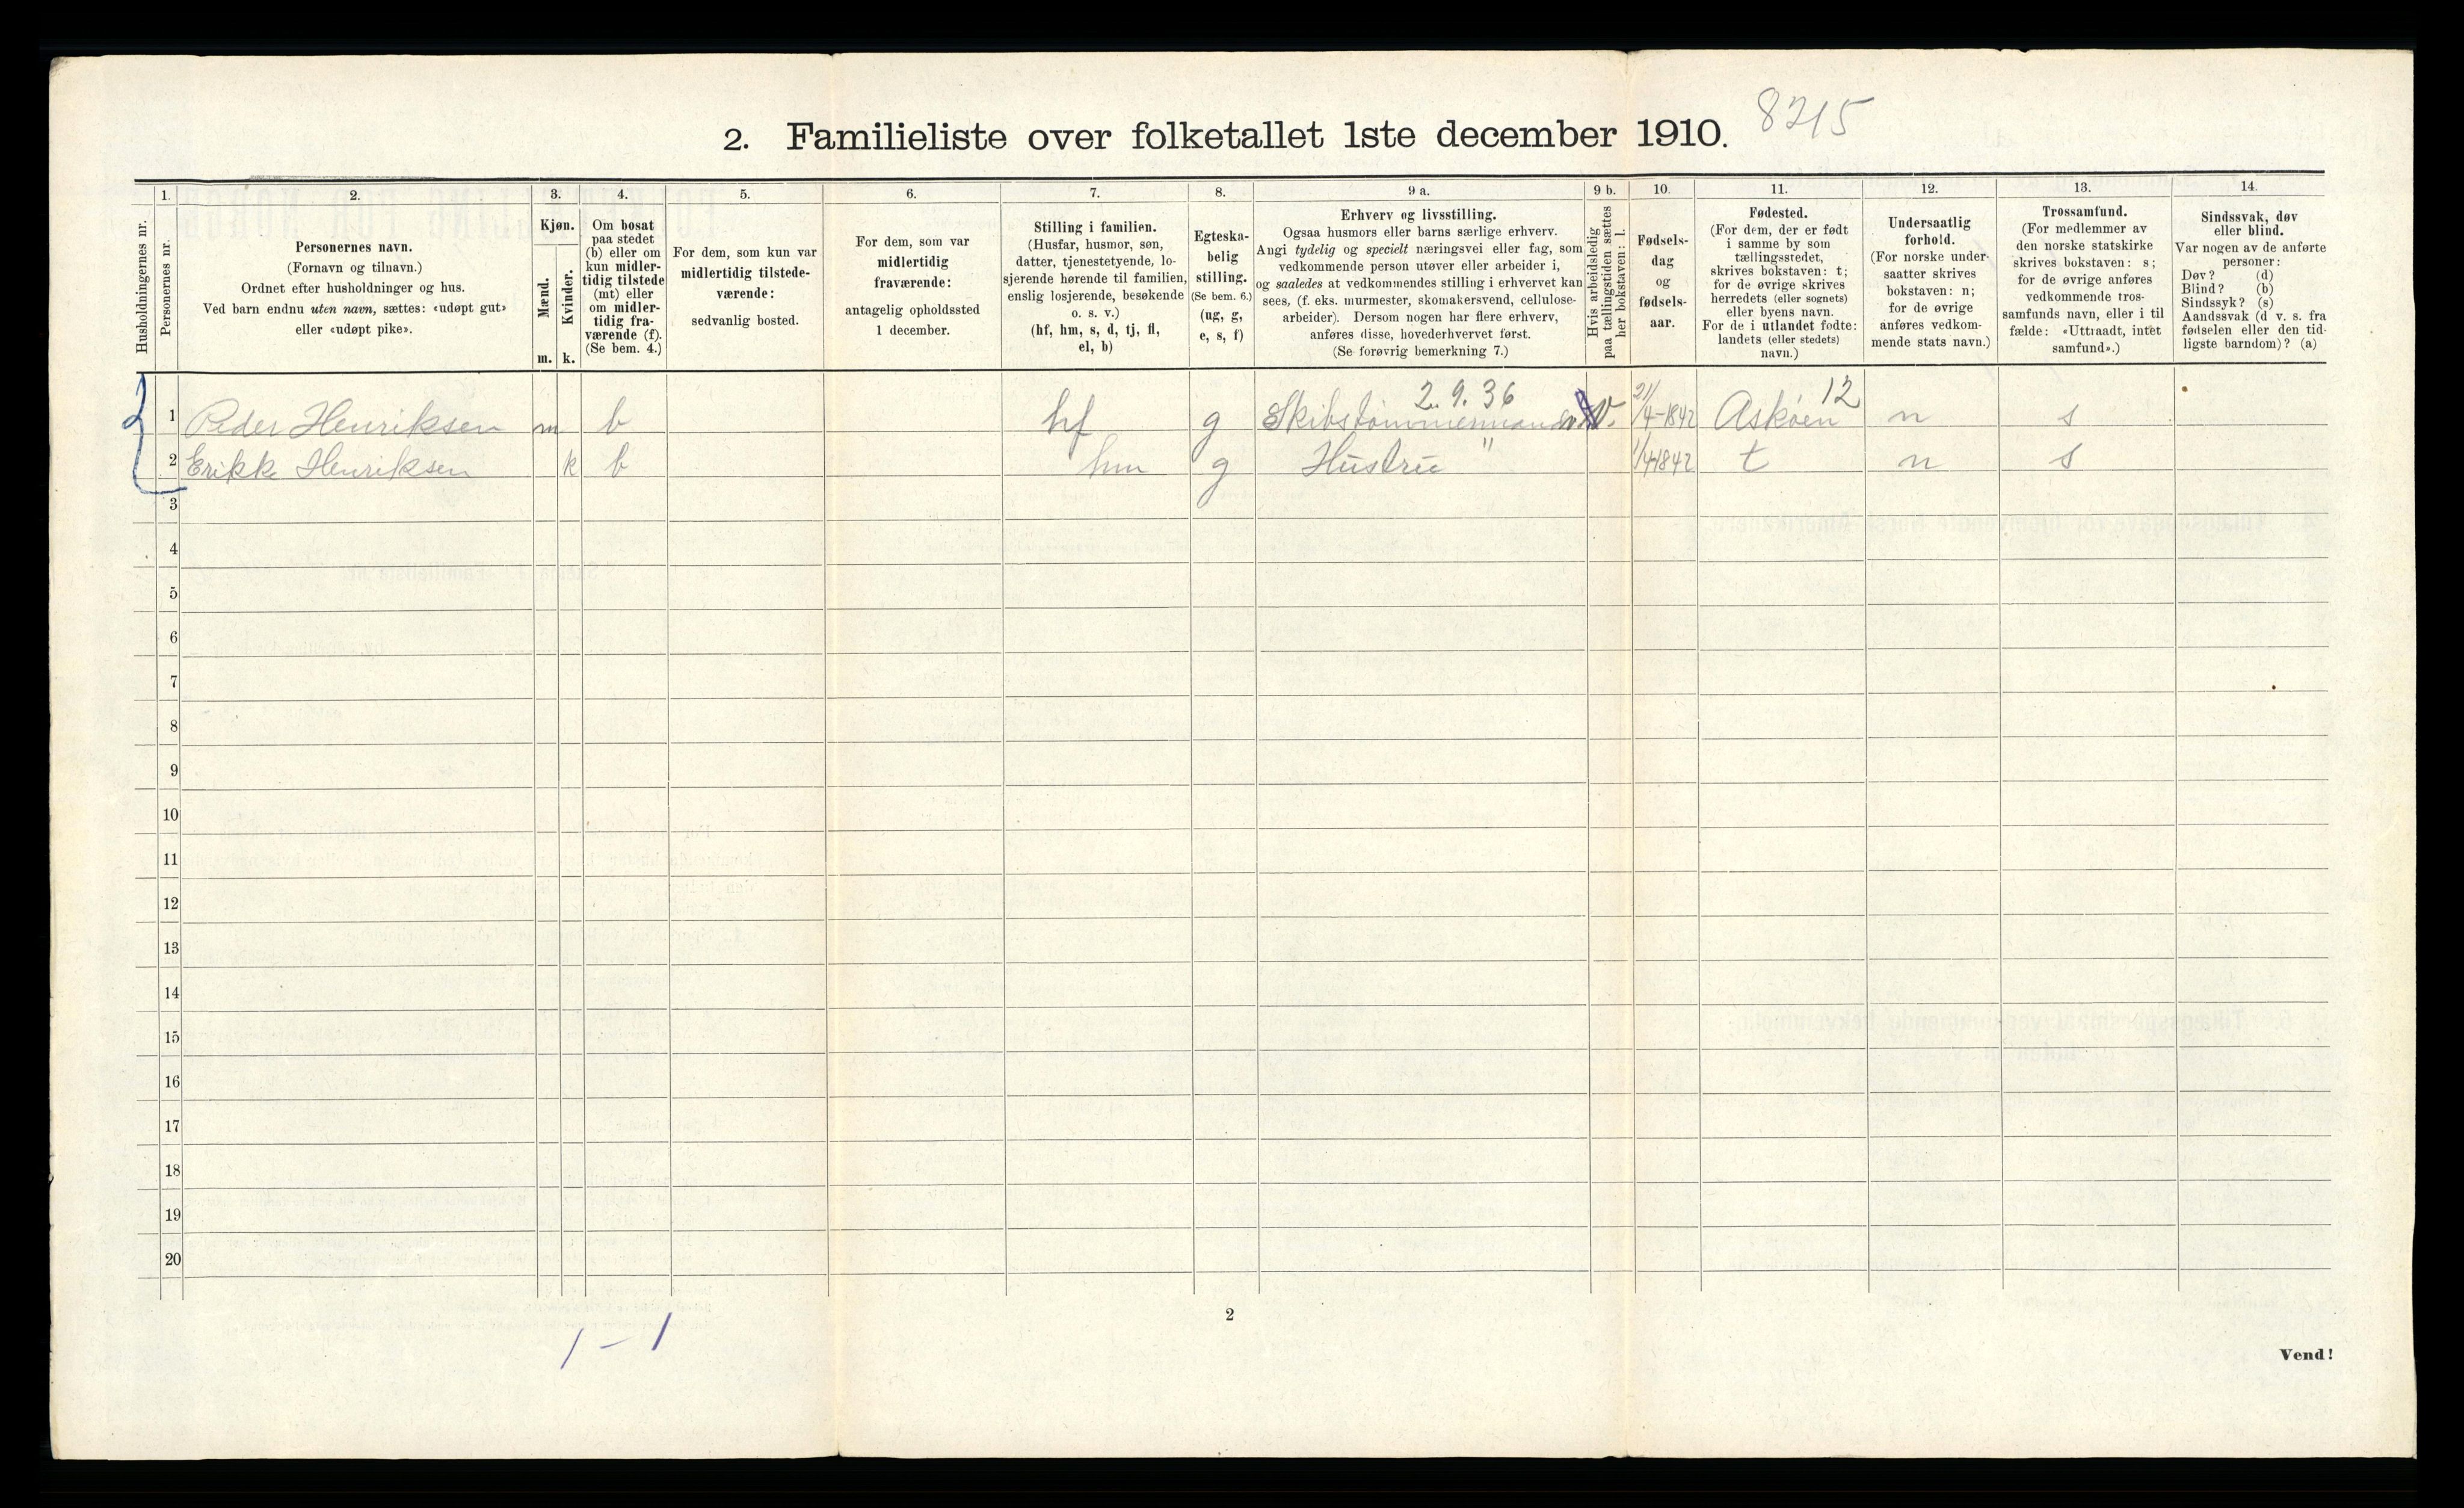 8215
2. Familieliste over folketallet 1ste december 1910.
1. 2. 3. 4. 5. 6. 7. 8. 9 a. 9 b. 10. 11. 12. 13. 14.
Husholdningernes nr.
Personernes nr.
Personernes navn.
(Fornavn og tilnavn.)
Ordnet efter husholdninger og hus.
Ved barn endnu uten navn, sættes: «udøpt gut»
eller «udøpt pike».
Kjøn.
Mænd.
Kvinder.
m. k.
Om bosat
paa stedet
(b) eller om
kun midler-
tidig tilstede
(mt) eller
om midler-
tidig fra-
værende (f).
(Se bem. 4.)
For dem, som kun var
midlertidig tilstede-
værende:
sedvanlig bosted.
For dem, som var
midlertidig
fraværende:
antagelig opholdssted
1 december.
Stilling i familien.
(Husfar, husmor, søn,
datter, tjenestetyende, lo-
sjerende hørende til familien,
enslig losjerende, besøkende
o. s. v.)
(hf, hm, s, d, tj, fl,
el, b)
Egteska-
belig
stilling.
(Se bem. 6.)
(ug, g,
e, s, f)
Erhverv og livsstilling.
Ogsaa husmors eller barns særlige erhverv.
Angi tydelig og specielt næringsvei eller fag, som
vedkommende person utøver eller arbeider i,
og saaledes at vedkommendes stilling i erhvervet kan
sees, (f. eks. murmester, skomakersvend, cellulose-
arbeider). Dersom nogen har flere erhverv,
anføres disse, hovederhvervet først.
(Se forøvrig bemerkning 7.)
Hvis arbeidsledig
paa tællingstiden sættes
her bokstaven: l.
Fødsels-
dag
og
fødsels-
aar.
Fødested.
(For dem, der er født
i samme by som
tællingsstedet,
skrives bokstaven: t;
for de øvrige skrives
herredets (eller sognets)
eller byens navn.
For de i utlandet fødte:
landets (eller stedets)
navn.)
Undersaatlig
forhold.
(For norske under-
saatter skrives
bokstaven: n;
for de øvrige
anføres vedkom-
mende stats navn.)
Trossamfund.
(For medlemmer av
den norske statskirke
skrives bokstaven: s;
for de øvrige anføres
vedkommende tros-
samfunds navn, eller i til
fælde: «Uttraadt, intet
samfund».)
Sindssvak, døv
eller blind.
Var nogen av de anførte
personer:
Døv? (d)
Blind? (b)
Sindssyk? (s)
Aandssvak (d v. s. fra
fødselen eller den tid-
ligste barndom)? (a)
2.9.36 12
1 Peder Henriksen m b hf g Skibstømmermand 21/4-1842 Askøen n s
2 Erikke Henriksen k b hm g Hustru " 1/4 1842 t n s
3
4
5
6
7
8
9
10
11
12
13
14
15
16
17
18
19
20
2
1 – 1
Vend!